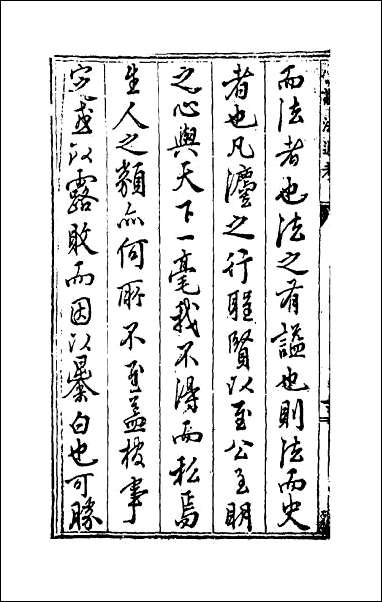 而法者也法之有諡也則法而史
者也凡瀍之行聖賢以至公至明
之心與天下一毫我不得而私焉
生人之類亦何所不至蓋棺事
定或以露敗而因以暴白也可勝